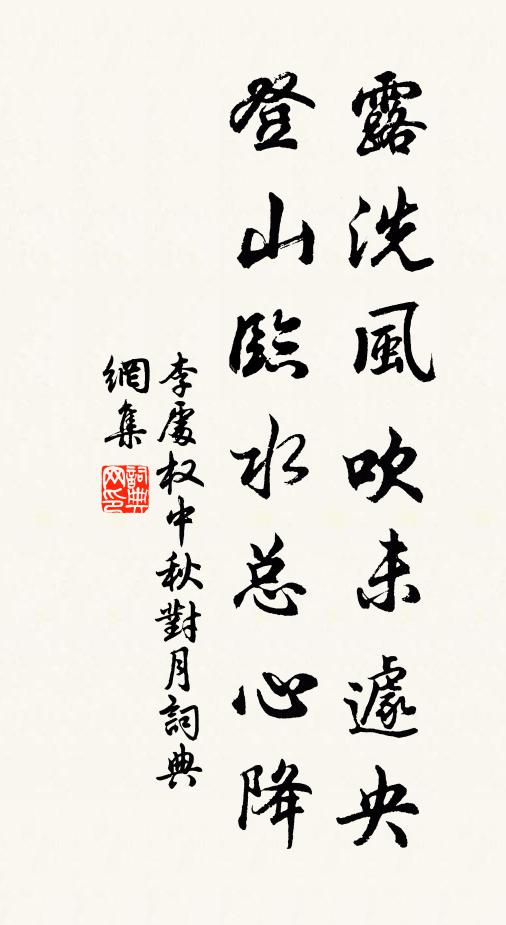 露洗風吹未遽央
登山臨水总心降
李處权中秋對月詞典
網集
詞典网印